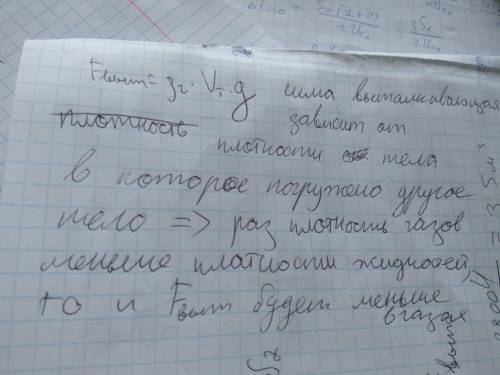 Δt₁₀ = Sₓ(1+2)/2υₓ = 3Sₓ/2υₓ
Fвыт = ρг · Vт · g сила выталкивающая
плотность зависит от
плотности тела
в которое погружено другое
тело => раз плотность газов
меньше платности жидкостей,
то и Fвыт будет меньше
в газах